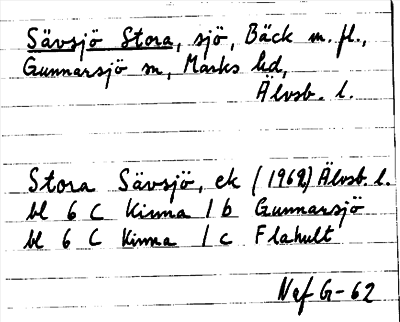 Sävsjö Stora, sjö, Bäck m. fl.,
Gunnarsjö sn, Marks hd,
Älvsb. l.
Stora Sävsjö, ek (1962) Älvsb. l.
bl 6 C Kinna 1 b Gunnarsjö
bl 6 C Kinna 1 c Flahult
Naf G-62